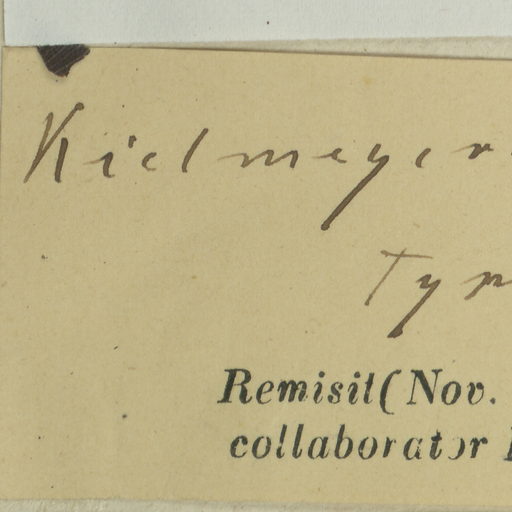 Kielmeyer
Typ
Remisit (Nov.
collaborator